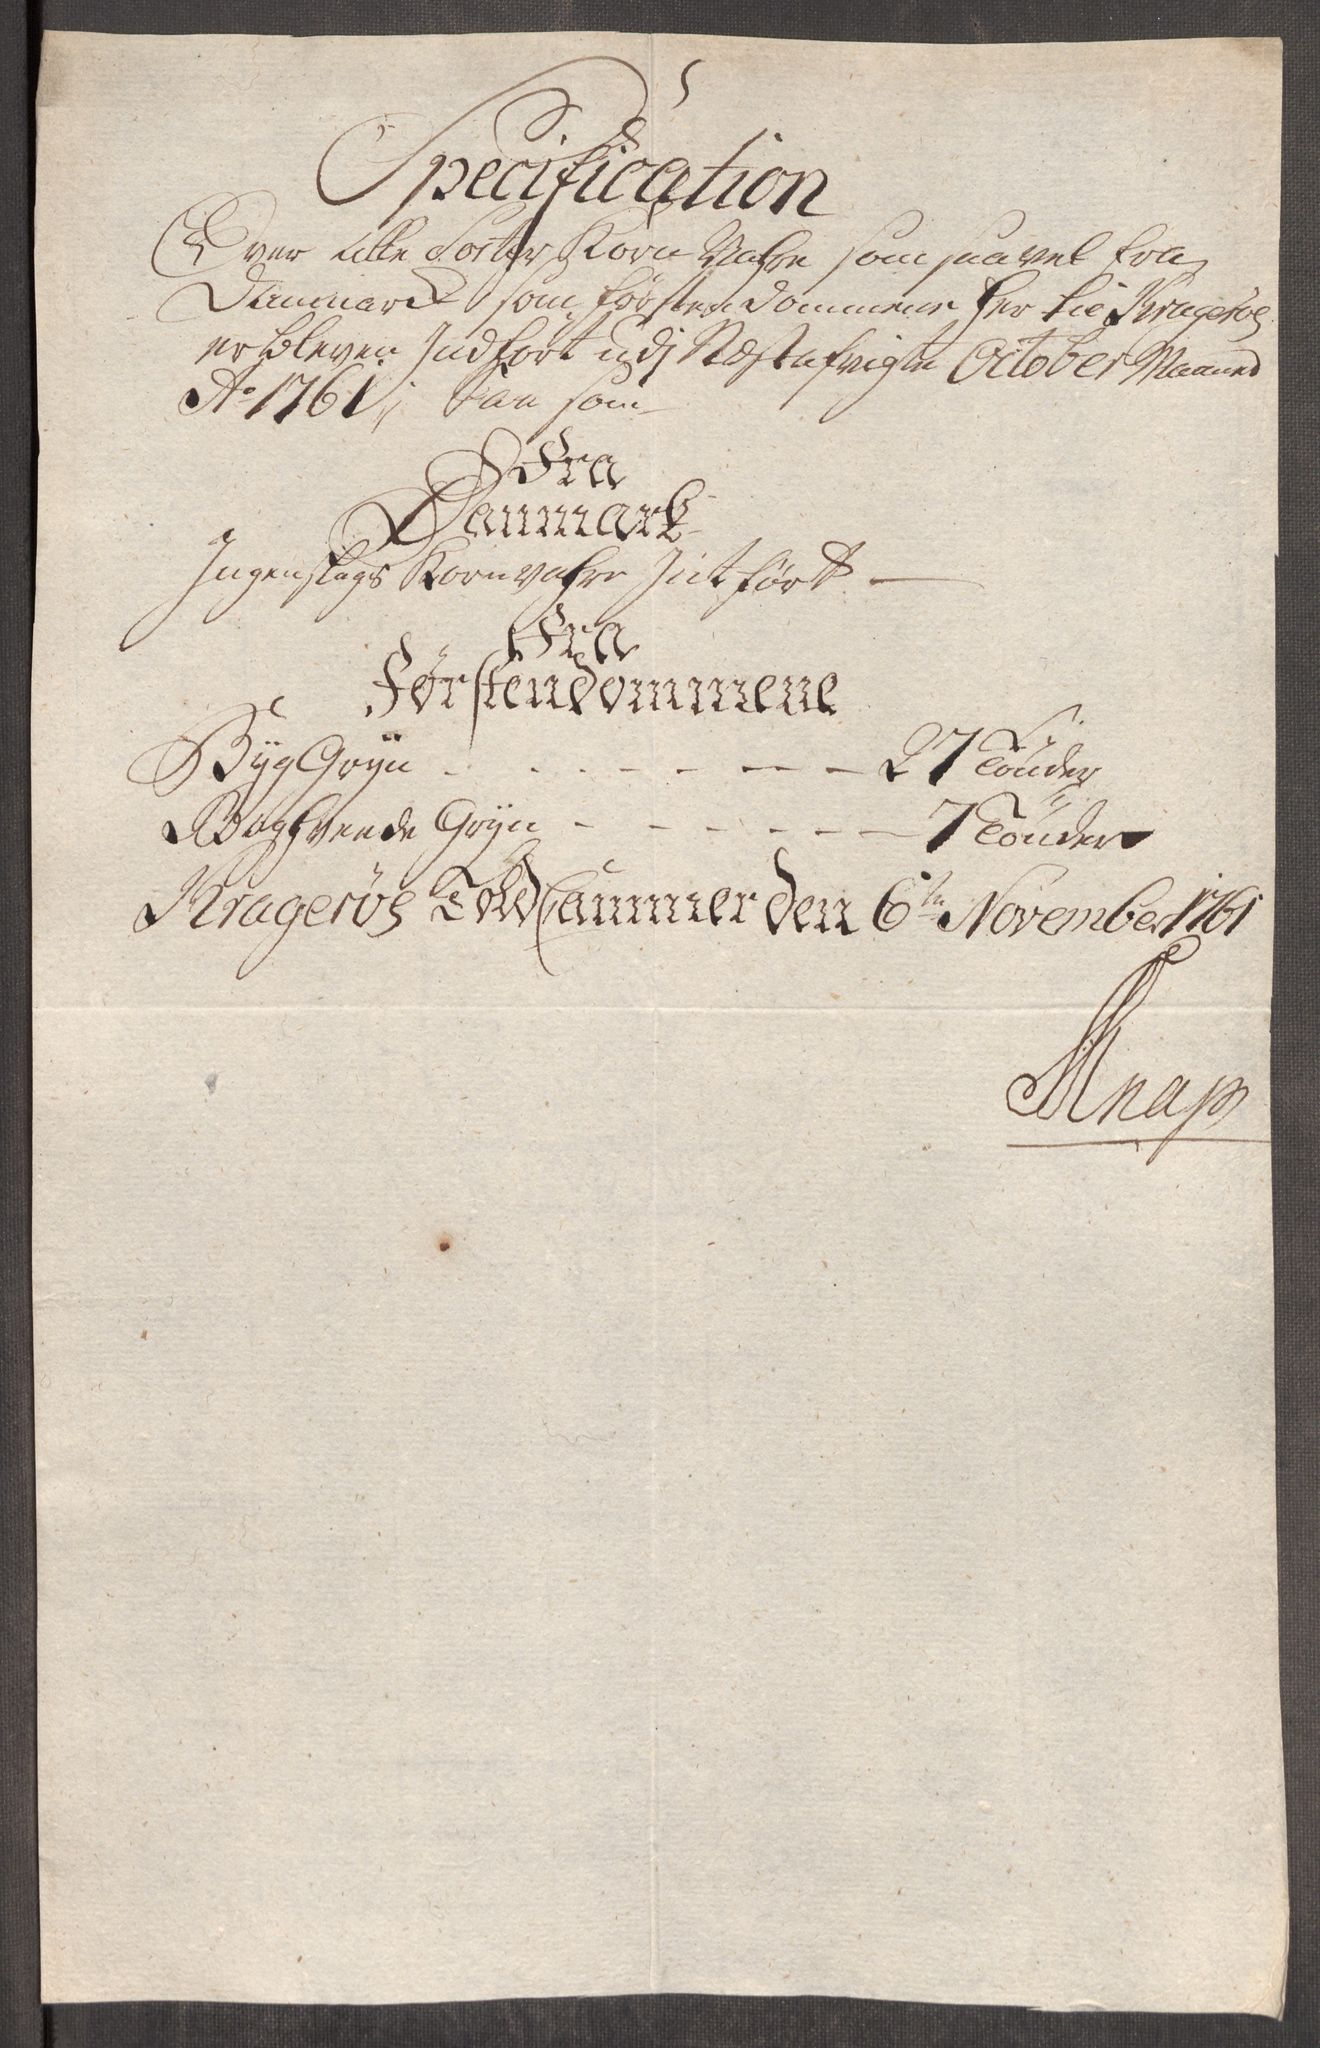 Specification
Over alle Sorter Korn Vahre som saavel fra
Danmarck som Førstendommene her tie Kragerøe
er bleven Indført udj Næstafvigte October Maaned
Ao 1761; Saa som
Fra
Danmark
Ingenslags Kornvahre Intført
Fra
Førstendommene
Byg Gryn 27 Tønder
Boghvede Gryn 7 Tønder
Kragerøe Told Cammer den 6te November 1761
Knap